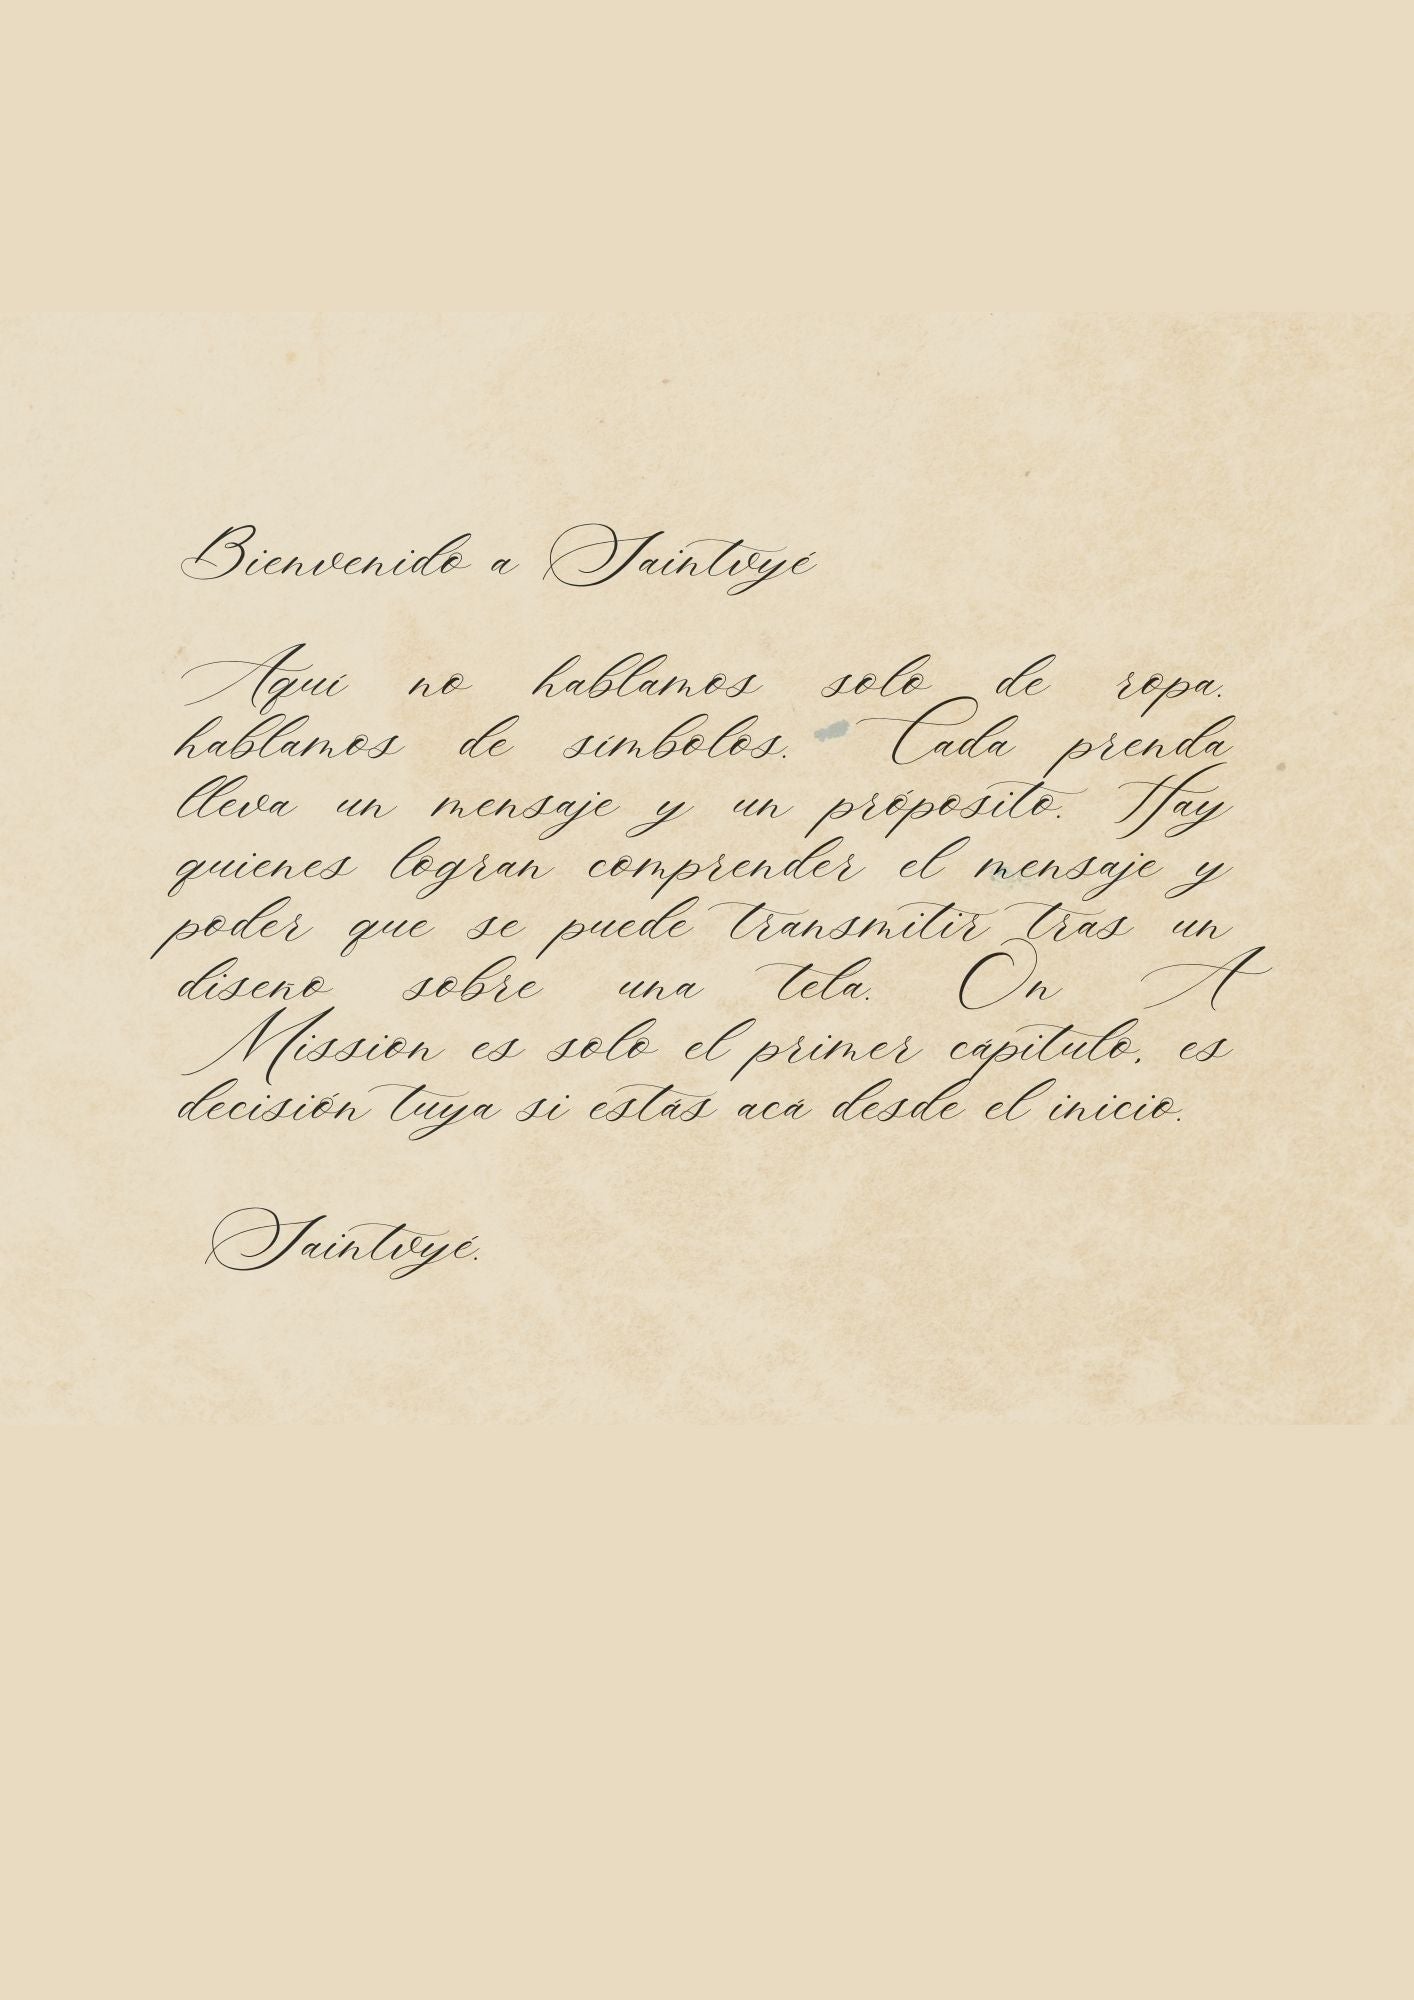 Bienvenido a Saintvyé
Aquí no hablamos solo de ropa.
hablamos de símbolos. Cada prenda
lleva un mensaje y un próposito. Hay
quienes logran comprender el mensaje y
poder que se puede transmitir tras un
diseño sobre una tela. On A
Mission es solo el primer cápitulo, es
decisión tuya si estás acá desde el inicio.
Saintvyé.